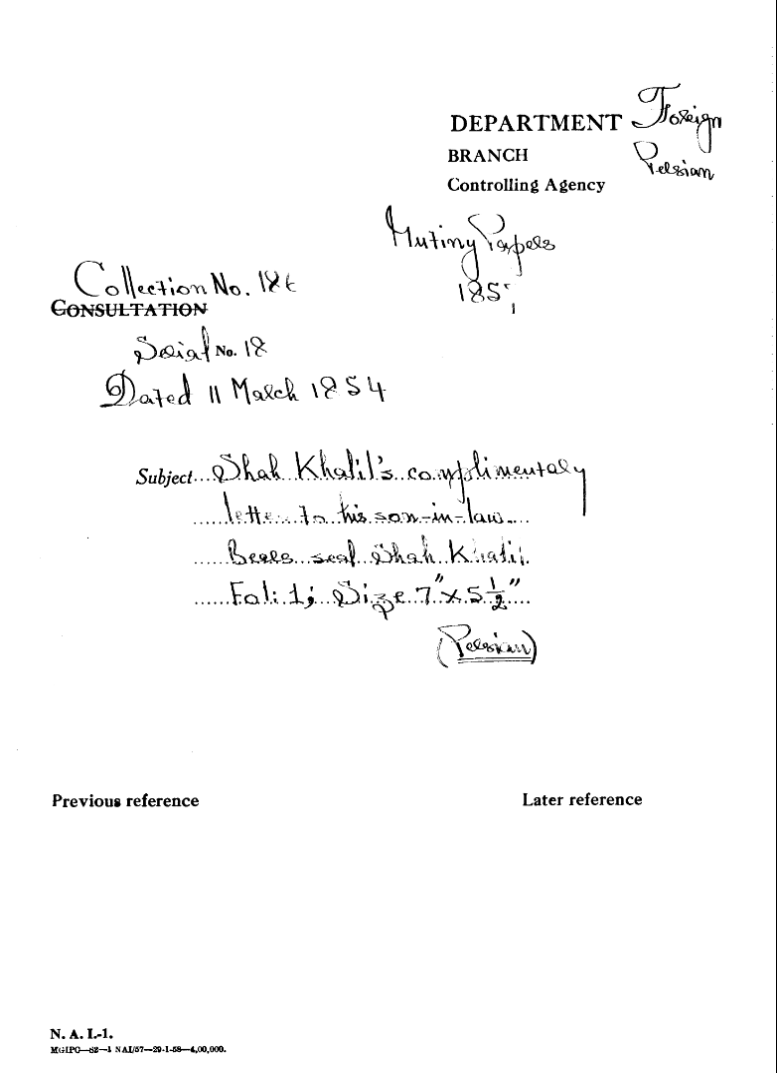 DEPARTMENT Foreign
BRANCH Persian
Controlling Agency
Mutiny Papers
1857
Collection No. 186
CONSULTATION
Serial No. 18
Dated 11 March 1854
Subject...Shah Khalil's complimentary
letter to his son-in-law...
Bears seal Shah Khalil.
Fol: 1; Size 7" x 5 1/2"
(Persian)
Previous reference
Later reference
N. A. I.-1.
MGIPC—S2—1 NAI/57—29-1-58—4,00,000.